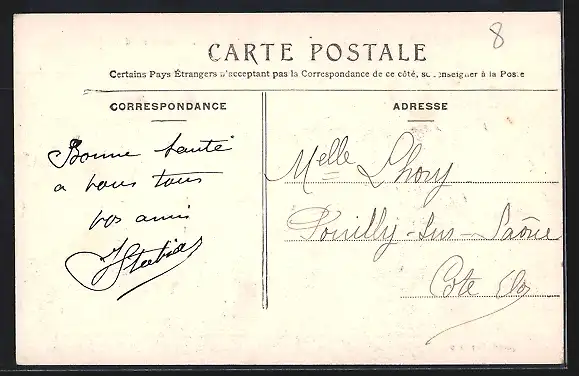 8
CARTE POSTALE
Certains Pays Étrangers n'acceptant pas la Correspondance de ce côté, se renseigner à la Poste
CORRESPONDANCE
ADRESSE
Bonne santé
a vous tous
vos amis
Melle Lhory
Pouilly-sur-Saône
Côte d'Or